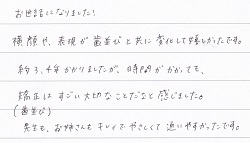 お世話になりました!
横顔や、表現が歯並びと共に変化して嬉しかったです。
約3、4年かかりましたが、時間がかかっても、
矯正はすごい大切なことだなと感じました。
(歯並び)
先生も、お姉さんもキレイでやさしくて通いやすかったです。